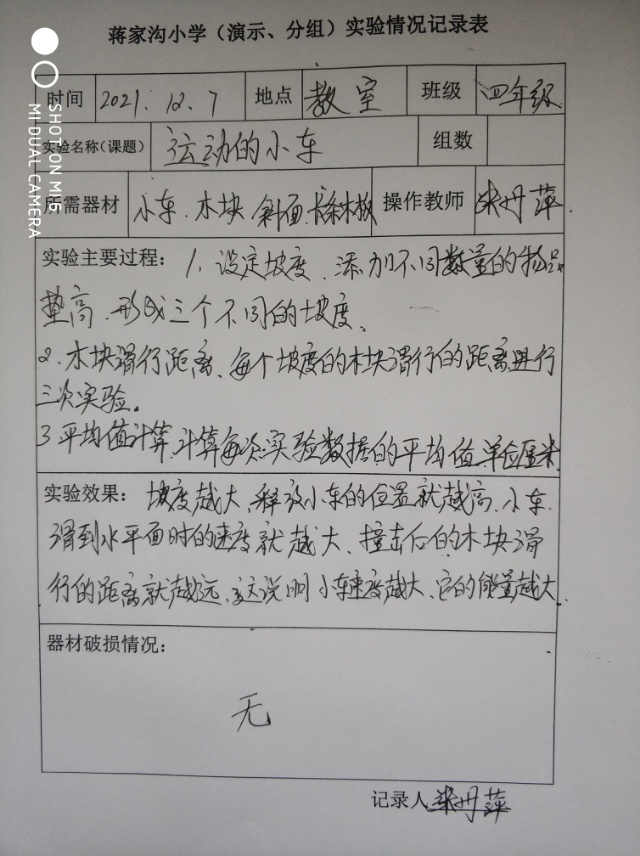 蒋家沟小学（演示、分组）实验情况记录表
时间 2021.12.7 地点 教室 班级 四年级
实验名称（课题） 运动的小车 组数
所需器材 小车.木块.斜面.长木板 操作教师 丹萍.
实验主要过程： 1、设定坡度、添加不同数量的物品
垫高.形成三个不同的坡度、
2.木块滑行距离、每个坡度的木块滑行的距离进行
三次实验。
3.平均值计算.计算每次实验数据的平均值.单位厘米
实验效果： 坡度越大、释放小车的位置就越高、小车
滑到水平面时的速度就越大、撞击后的木块滑
行的距离就越远、这说明小车速度越大、它的能量越大.
器材破损情况：
无
记录人 丹萍
SHOT ON MI 6
MI DUAL CAMERA